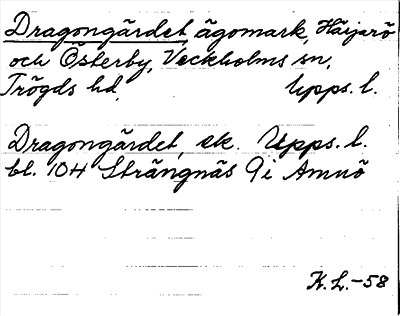 Dragongärdet, ägomark, Härjarö
och Österby, Veckholms sn,
Trögds hd, Upps. l.
Dragongärdet, ek. Upps. l.
bl. 104 Strängnäs 9i Amnö
K.L.-58